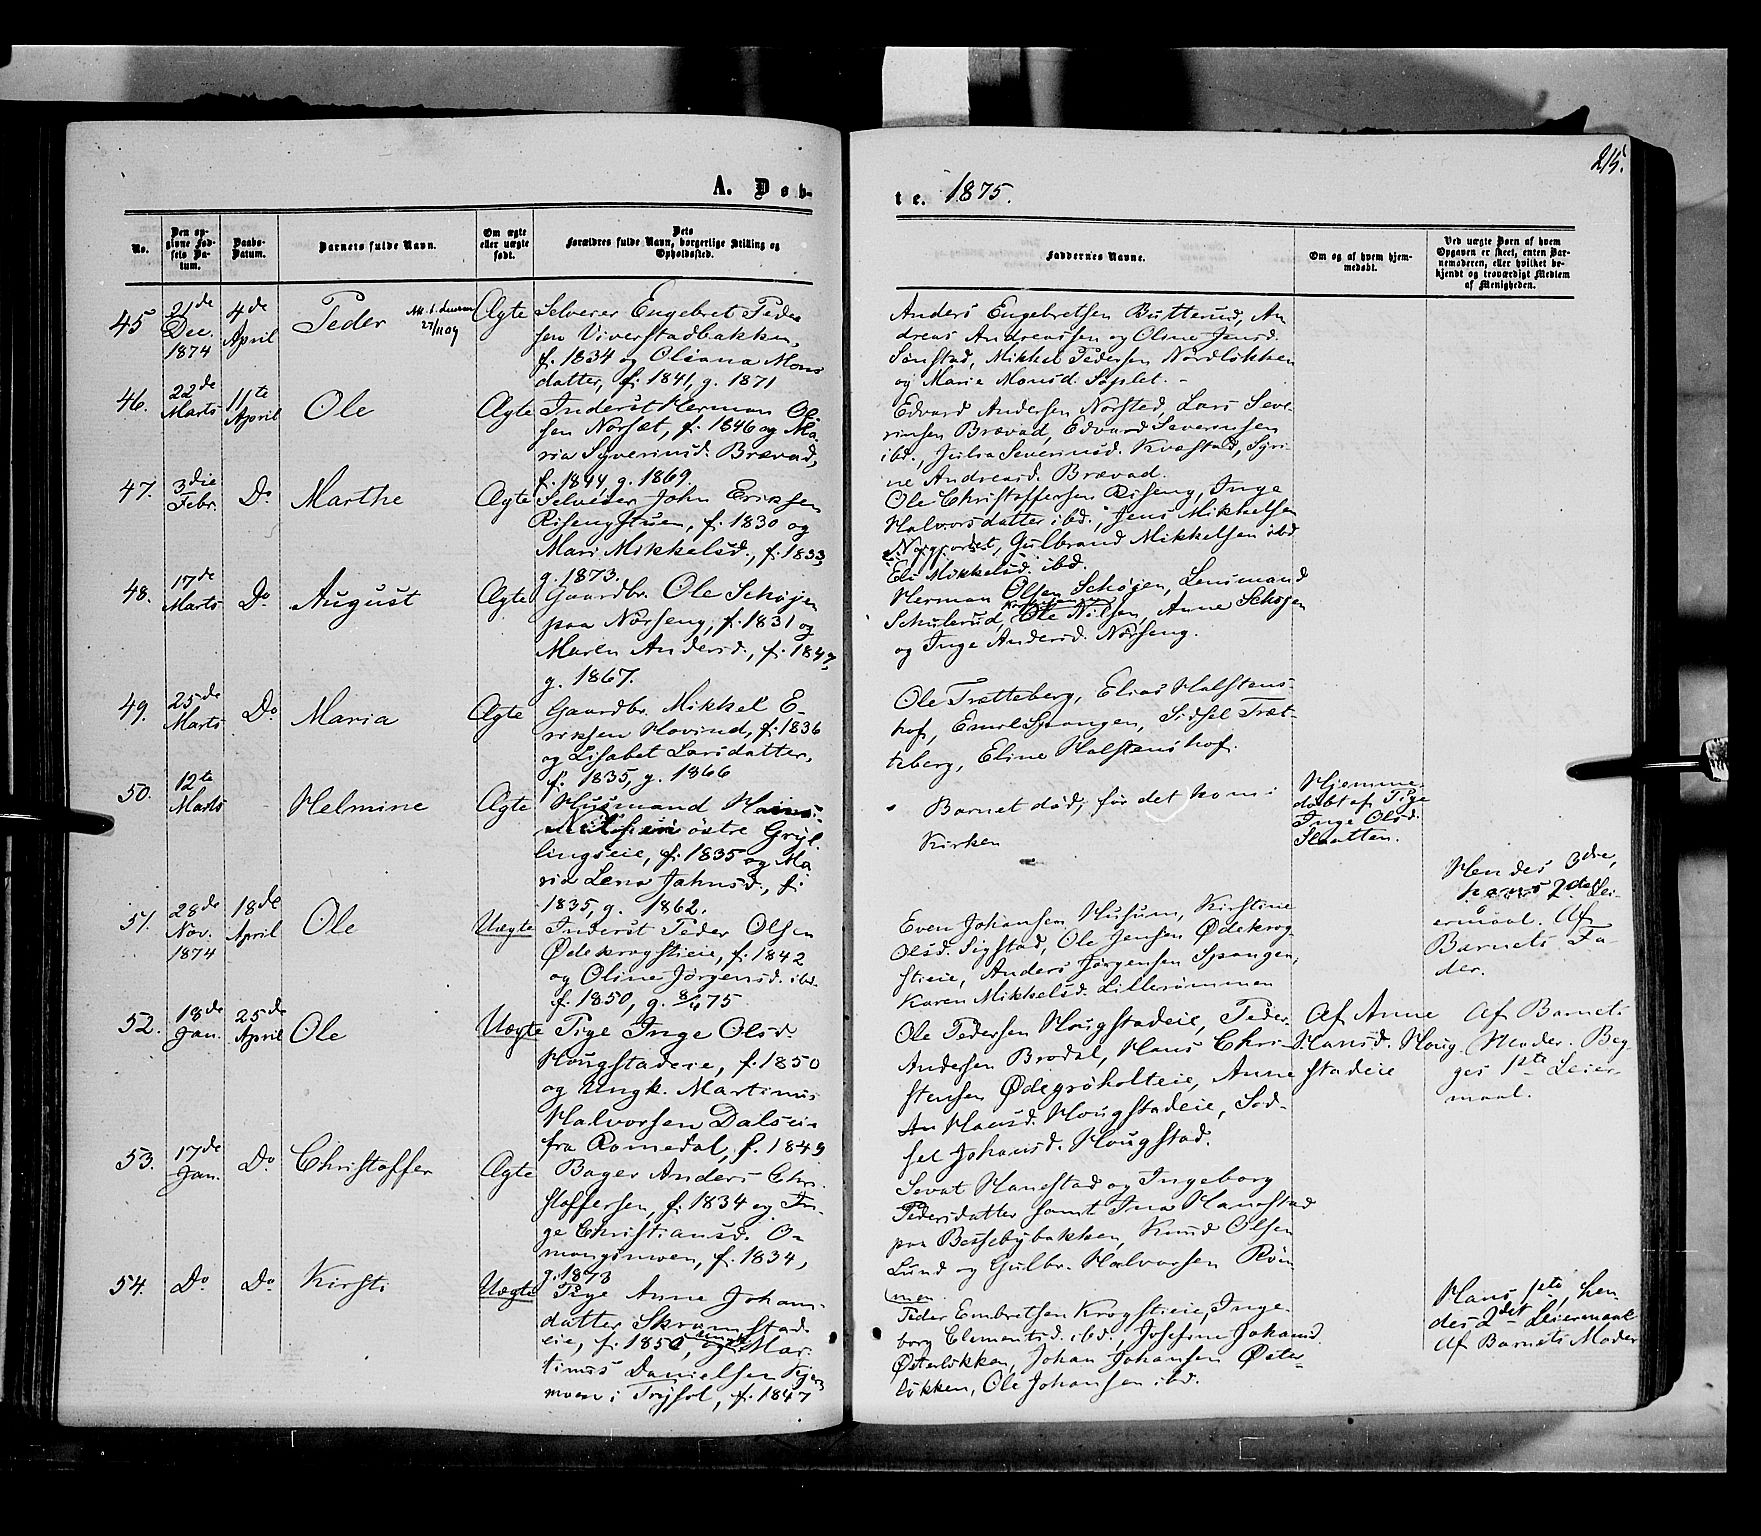 215.
A. Døb-
te. 1875.
No.
Den op-
givne Fød-
sels Da-
tum.
Daabs-
Datum.
Barnets fulde Navn.
Om ægte
eller uægte
født.
Dets
Forældres fulde Navn, borgerlige Stilling og
Opholdssted.
Faddernes Navne.
Om og af hvem hjem-
medøbt.
Ved uægte Børn af hvem
Opgaven er skeet, enten Bar-
nemoderen, eller hvilket be-
kjendt og troværdigt Medlem
af Menigheden.
45
21de
Dec.
1874
4de
April
Peder
27/11 09
Ægte
Selveier Engebret Peder
sen Viverstadbakken,
f. 1834 og Oliana Mons
datter, f. 1841, g. 1871
Anders Engebretsen Butterud, An
dreas Andreassen og Oline Jensd.
Sønstad, Mikkel Pedersen Nordløkken
og Maria Monsd. Saplet. -
46.
22de
Marts
11te
April
Ole
Ægte
Inderst Herman Ol-
sen Norsæt, f. 1846 og Ma-
ria Syverinsd. Brævad,
f. 1844, g. 1869.
Edvard Andersen Norsted, Lars Seve-
rinsen Brævad, Edvard Severinsen
ibd., Julia Severinsd. Kvæstad, Syri-
ne Andreasd. Brævad.
47.
3die
Febr.
Do
Marthe
Ægte
Selveier John Eriksen
Risengstuen, f. 1830 og
Mari Mikkelsd., f. 1833,
g. 1873.
Ole Christoffersen Riseng, Inge
Halvorsdatter ibd., Jens Mikkelsen
Gulbrand Mikkelsen ibd
Eli Mikkelsd. ibd.
48.
17de
Marts
Do
August
Ægte
Gaardbr. Ole Schøjen
paa Nørseng, f. 1831 og
Maren Andersd., f. 1847,
g. 1867.
Herman Olsen Schøjen, Lensmand
Schulerud, Ole Nilsen, Anne Schøjen
og Inge Andersd. Nørseng.
49.
25de
Marts
Do
Maria
Ægte
Gaardbr. Mikkel E-
riksen Hovind, f. 1836
og Lisabet Larsdatter,
f. 1835, g. 1866
Ole Trætteberg, Elias Halstens-
hof, Emil Spangen, Sidsel Træt-
teberg, Eline Halstenshof.
50.
12te
Marts
Helmine
Ægte
Husmand Hans
Nilsen østre Gryl-
lingseie, f. 1835 og Ma
ria Lena Jahnsd., f.
1835, g. 1862.
Barnet død, før det kom i
Kirken
Hjemme-
døbt af Pige
Inge Olsd.
Slaatten.
51.
28de
Nov.
1874
18de
April
Ole
Uægte
Inderst Peder Olsen
Ødekrogstieie, f. 1842
og Oline Jørgensd. ibd.
f. 1850, g. 8/4 75
Even Johansen Husum, Kirstine
Olsd. Sigstad, Ole Jensen Ødekrog-
stieie, Anders Jørgensen Spangen,
Karen Mikkelsd. Lillerømmen
Hendes 3die,
hans 2det Lei-
ermaal. Af
Barnets Fa-
der.
52.
18de
Jan.
25de
April
Ole
Uægte
Pige Inge Olsd.
Hougstadeie, f. 1850
og Ungk. Martinus
Halvorsen Dalseie
fra Romedal, f. 1849
Ole Pedersen Hougstadeie, Peder
Andersen Brodal, Hans Chri-
stensen Ødegrøholteie, Anne
Hansd. Hougstadeie, Sid-
sel Johansd. Hougstad.
Af Anne
Hansd. Houg
stadeie
Af Barnets
Moder. Beg-
ges 1ste Leier-
maal.
53.
17de
Jan.
Do
Christoffer
Ægte
Bager Anders Chri-
stoffersen, f. 1834 og In-
ge Christiansd. O-
mangsmoen, f. 1834,
g. 1873
Sevat Hanestad og Ingeborg
Pedersdatter samt Ina Hanestad
paa Bessebybakken, Knud Olsen
Lund og Gulbr. Halvorsen Røm
men.
54.
Do
Do
Kirsti
Uægte
Pige Anne Johans-
datter Skramstad-
eie, f. 1850, ungk. Mar-
tinus Danielsen Kjern
moen i Trysil, f. 1847
Peder Embretsen Krogstieie, Inge-
borg Clementsd. ibd., Josefine Johansd.
Østerløkken, Johan Johansen Øster-
løkken, Ole Johansen ibd.
Hans 1ste, hen
des 2det Leiermaal
Af Barnets Moder